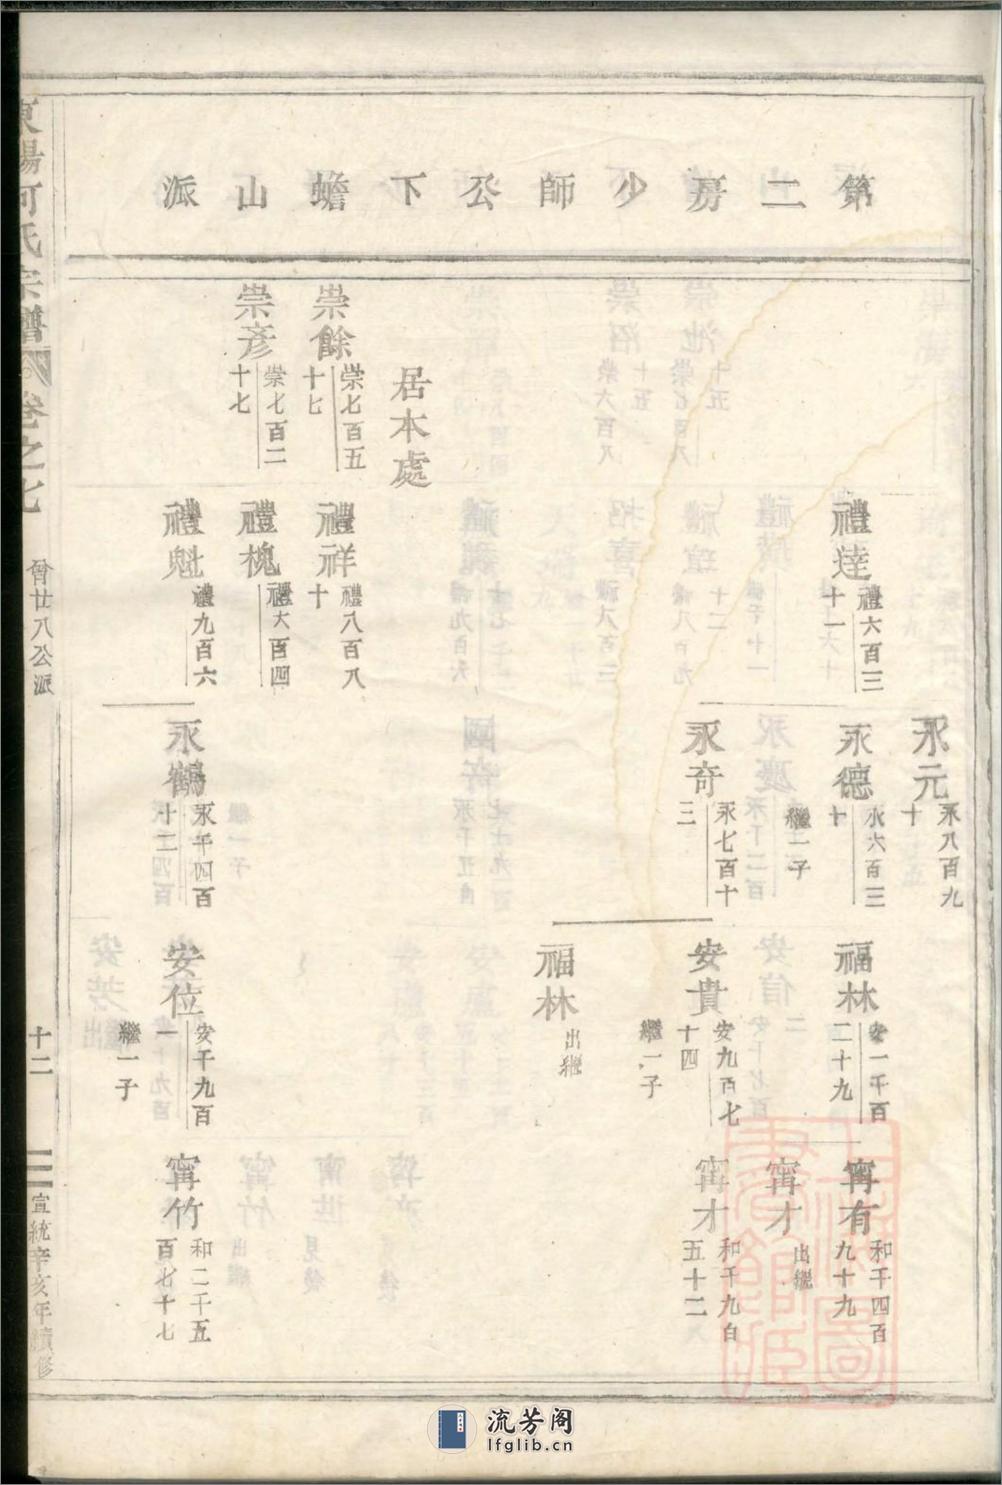 第二房少師公下蟾山派
崇餘
崇七百五十七
崇彥
崇七百二十七
居本處
禮達
禮六百三十一
禮祥
禮八百八十
禮槐
禮大百四
禮魁
禮九百六
永元
永八百九十
永德
永六百三十
繼一子
永奇
永七百十三
永鶴
永千四百十二
福林
安一千百二十九
安貴
安九百七十四
繼一子
福林
出繼
安位
安千九百一
繼一子
甯有
和千四百九十九
甯才
出繼
甯才
和千九百五十二
甯竹
和二千五百七十七
東陽何氏宗譜
卷之七
曾廿八公派
十二
宣統辛亥年續修
流芳阁
lfglib.cn